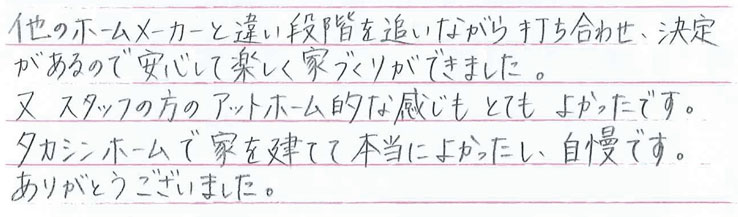 他のホームメーカーと違い段階を追いながら打ち合わせ、決定
があるので安心して楽しく家づくりができました。
又 スタッフの方のアットホーム的な感じもとてもよかったです。
タカシンホームで家を建てて本当によかったし、自慢です。
ありがとうございました。